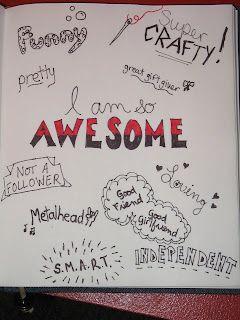 Funny
Super
CRAFTY!
pretty
great gift giver
I am so
AWESOME
NOT A
FOLLOWER
Loving
Good
Friend
Good
girlfriend
Metalhead
S.M.A.R.T.
INDEPENDENT